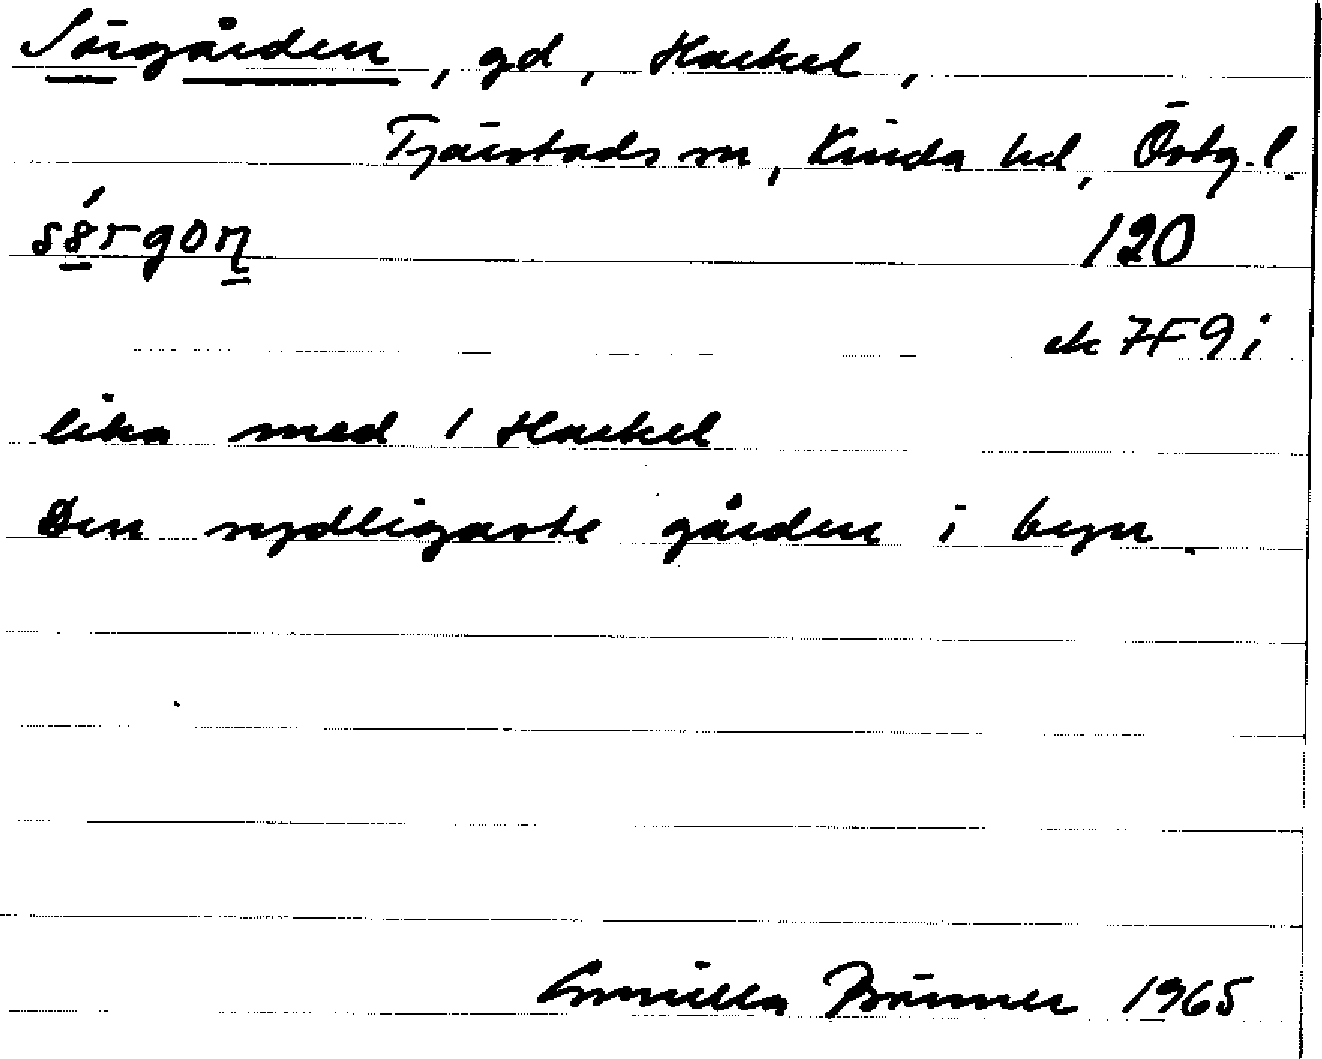 Sörgården, gd, Hackel,
Tjärstads sn, Kinda hd, Östg.l.
120
ek 7F9i
lika med 1 Hackel
Den sydligaste gården i byn.
Gunilla Brönner 1965